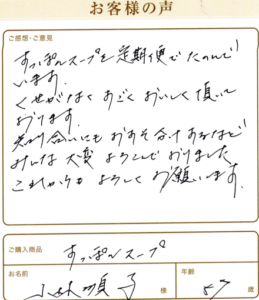 お客様の声
ご感想・ご意見
すっぽんスープを定期便でたのんで
います。
くせがなく すごく おいしく 頂いて
おります。
知り合いにも おすそ分け するなど
みんな 大変 よろこんで おりました
これからも よろしく お願います。
ご購入商品
すっぽんスープ
お名前
小林順子
様
年齢
57
歳